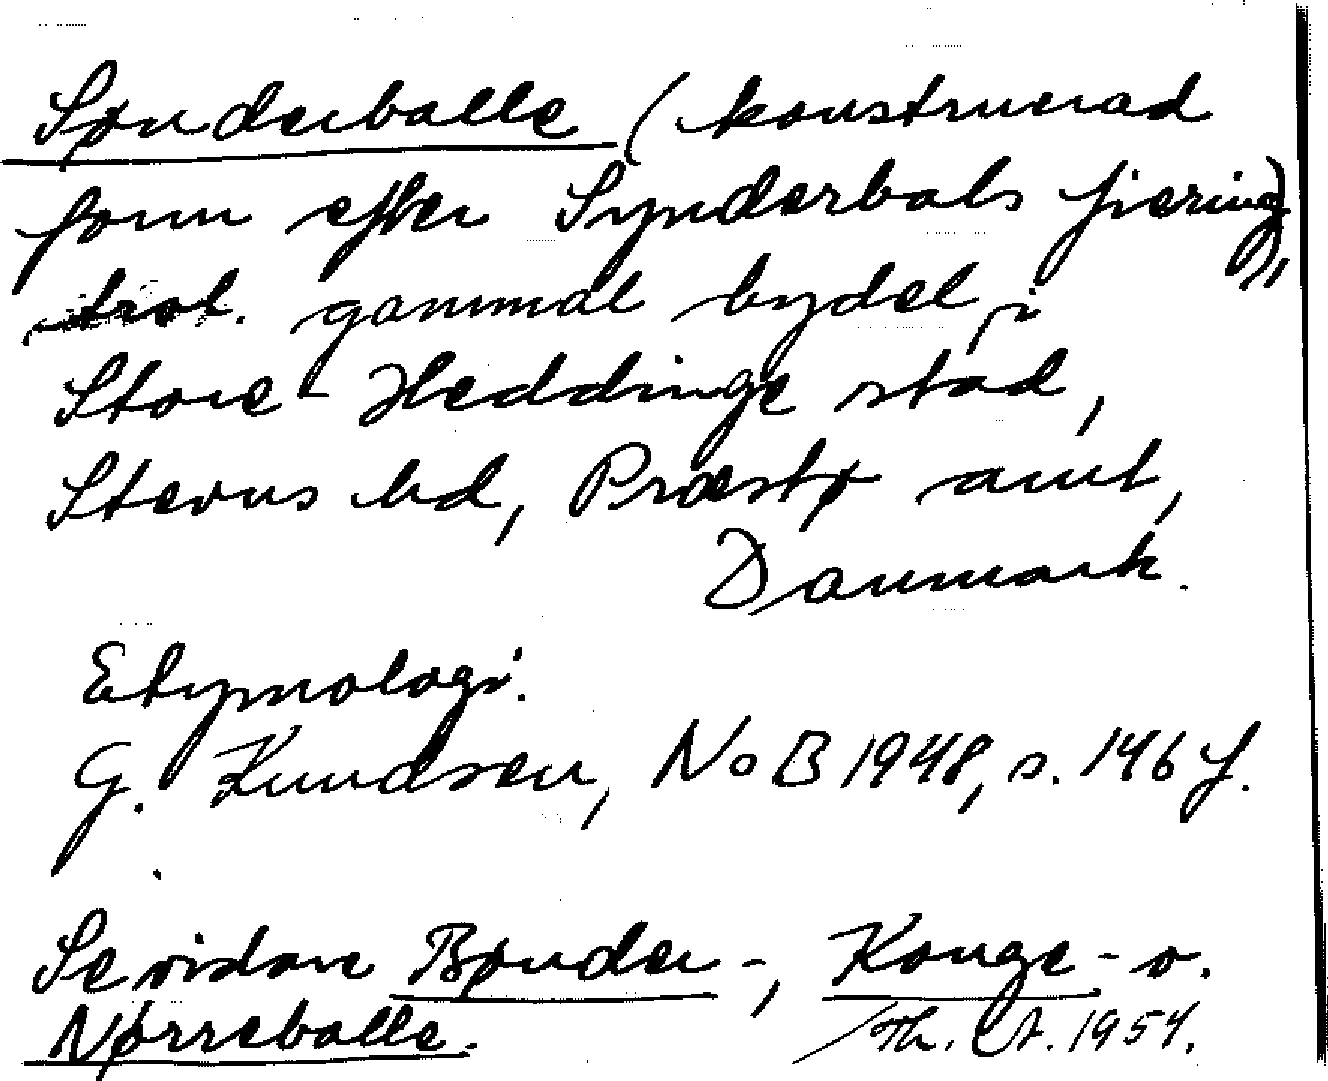 Sønderballe (konstruerad
form efter Synderbals fiering),
trol. gammal bydel i
Store Heddinge stad,
Stevns hd, Præstø amt,
Danmark.
Etymologi.
G. Knudsen, NoB 1948, s. 146 f.
Se vidare Bønder-, Konge- o.
Nørreballe.
Th. A. 1954.